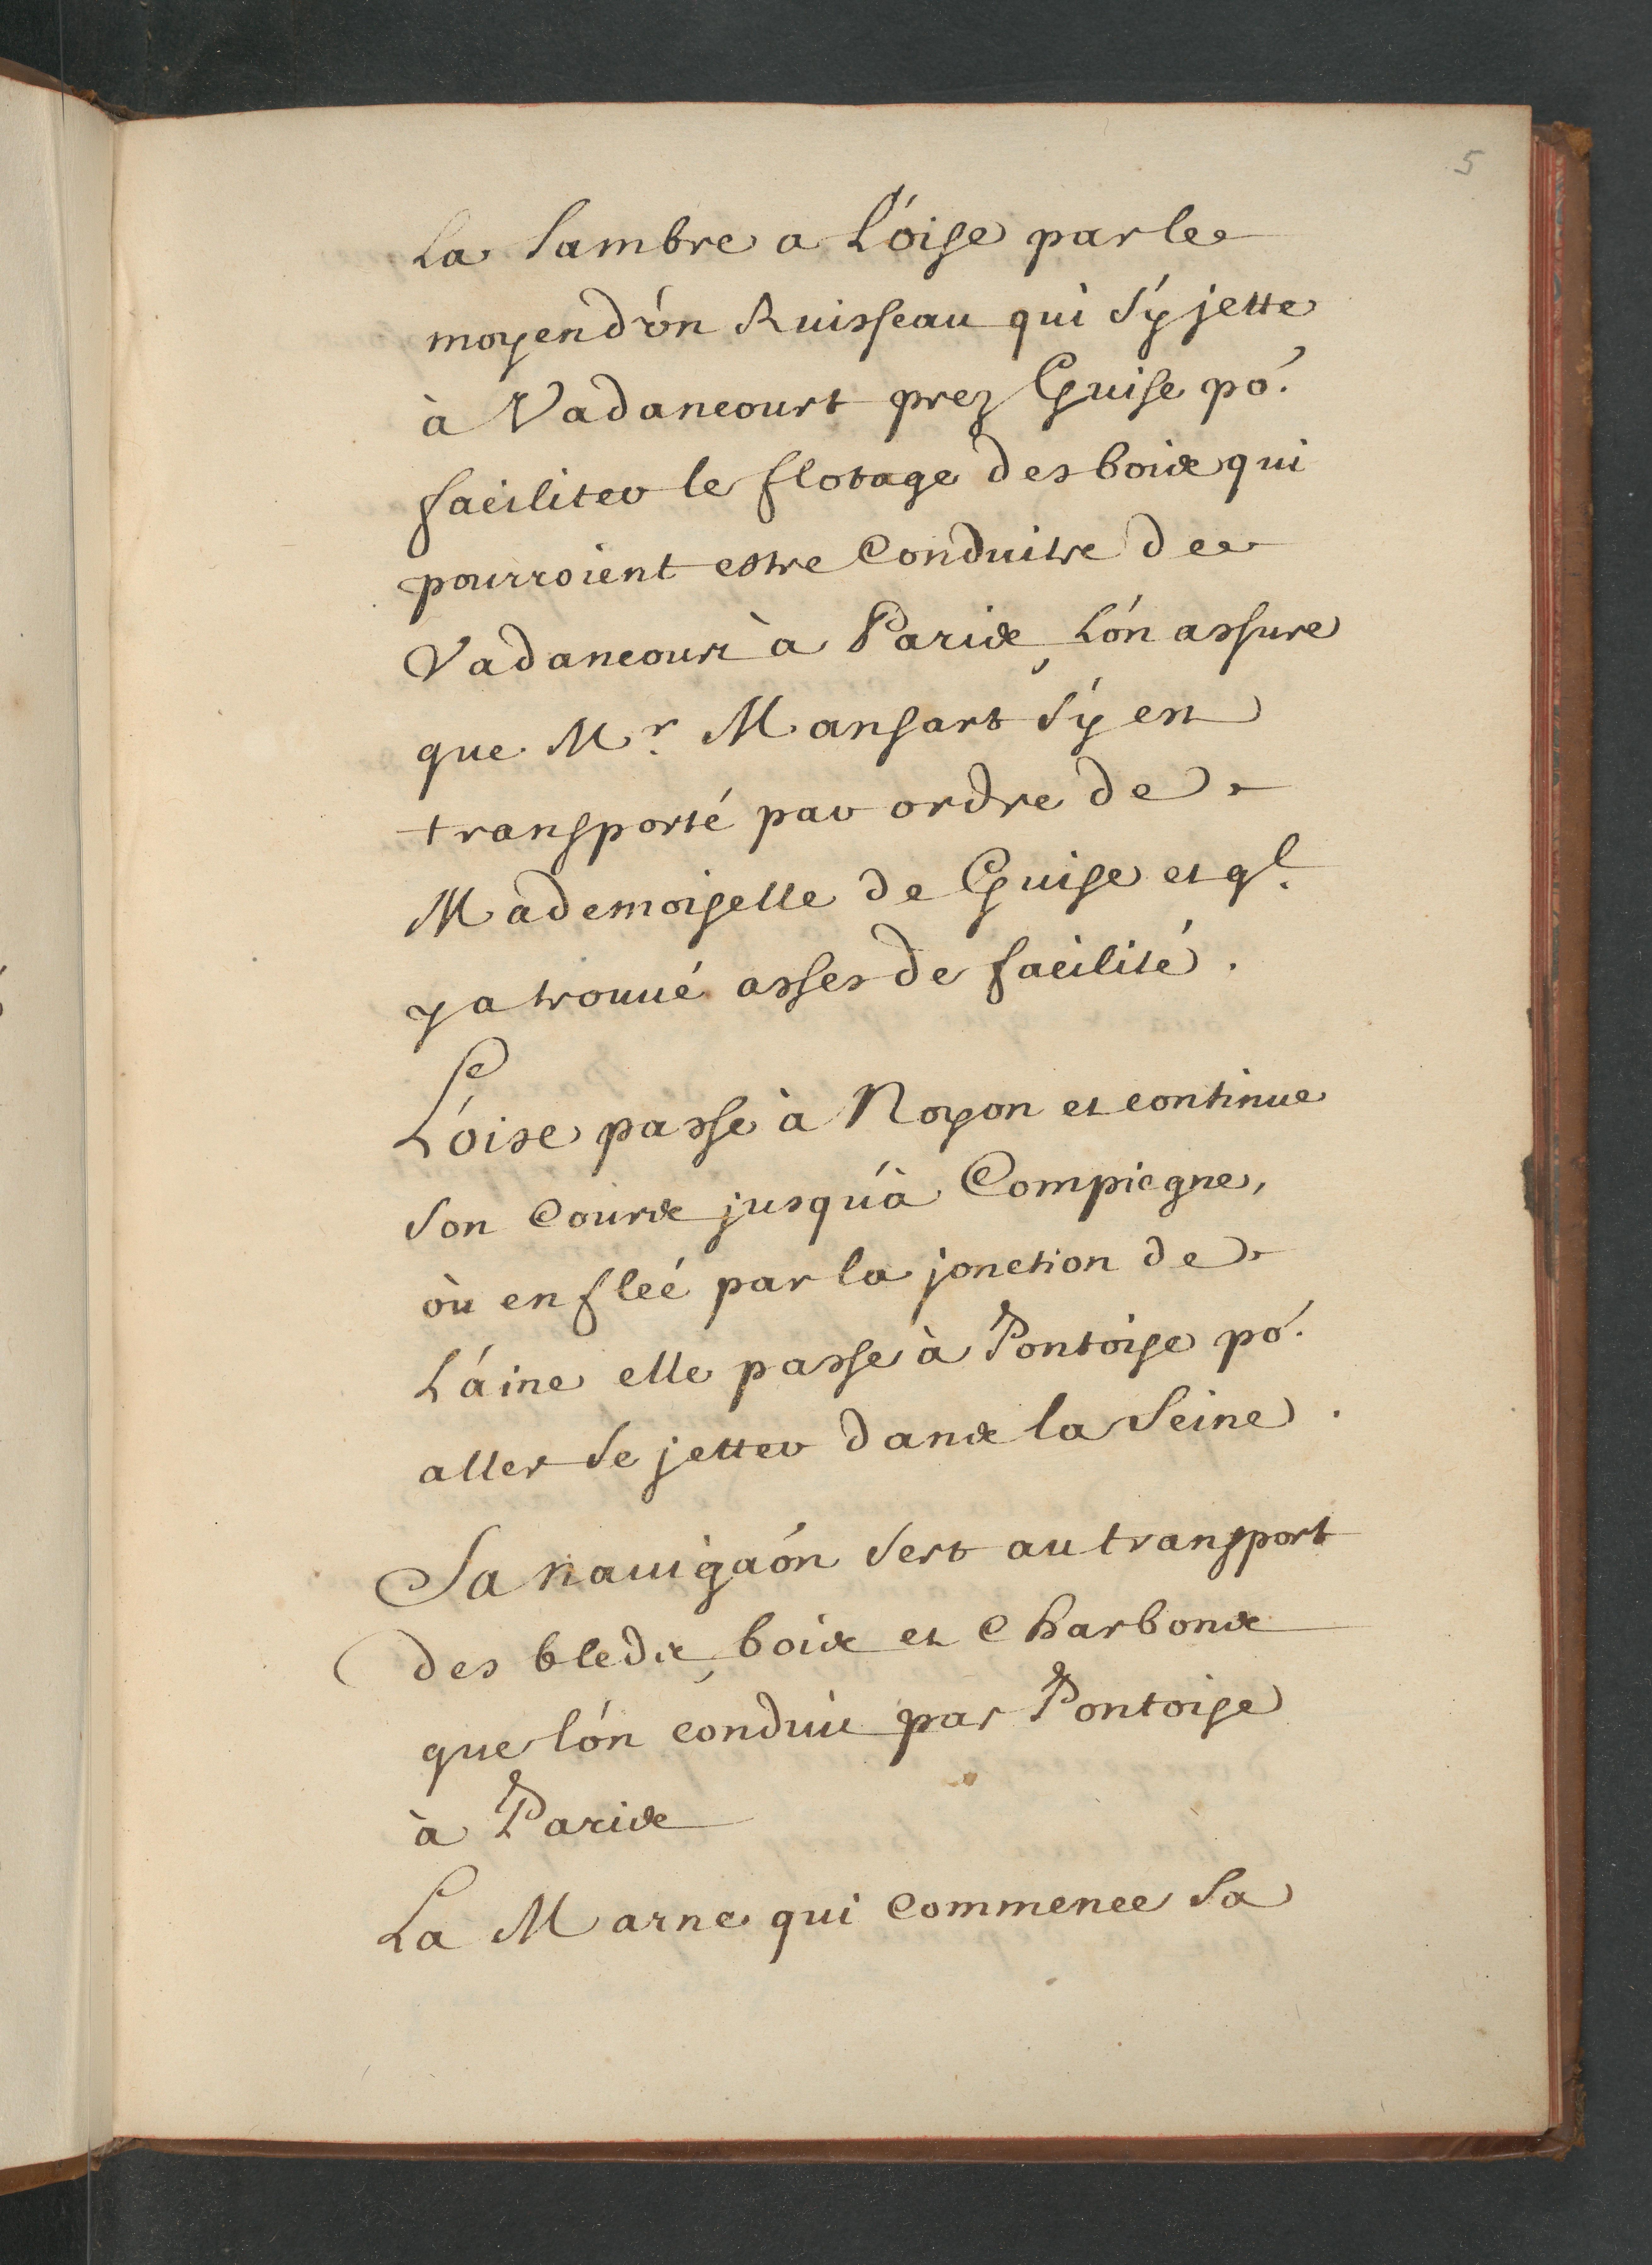 5
La Sambre a L'oise par le
moyen d'un Ruisseau qui s'y jette
à Vadancourt prez Guise po.r
faciliter le flotage des bois qui
pourroient estre Conduits de
Vadancourt à Paris, L'on assure
que M.r Mansart s'y est
transporté par ordre de
Mademoiselle de Guise et q.l
y a trouué asses de facilité.
L'oise passe à Noyon et continue
son Cours jusqu'à Compiegne,
où enfleé par la jonction de
L'aine elle passe à Pontoise po.r
aller se jetter dans la Seine.
Sa nauigaõn sert au transport
des bleds, bois et Charbons
que l'on conduit par Pontoise
à Paris
La Marne qui commence sa